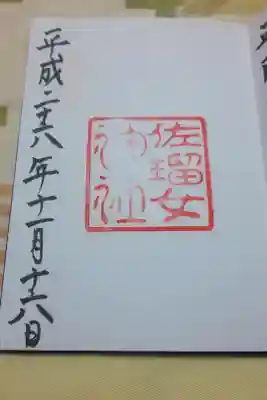 佐瑠女
神社
平成二十六年十一月十六日